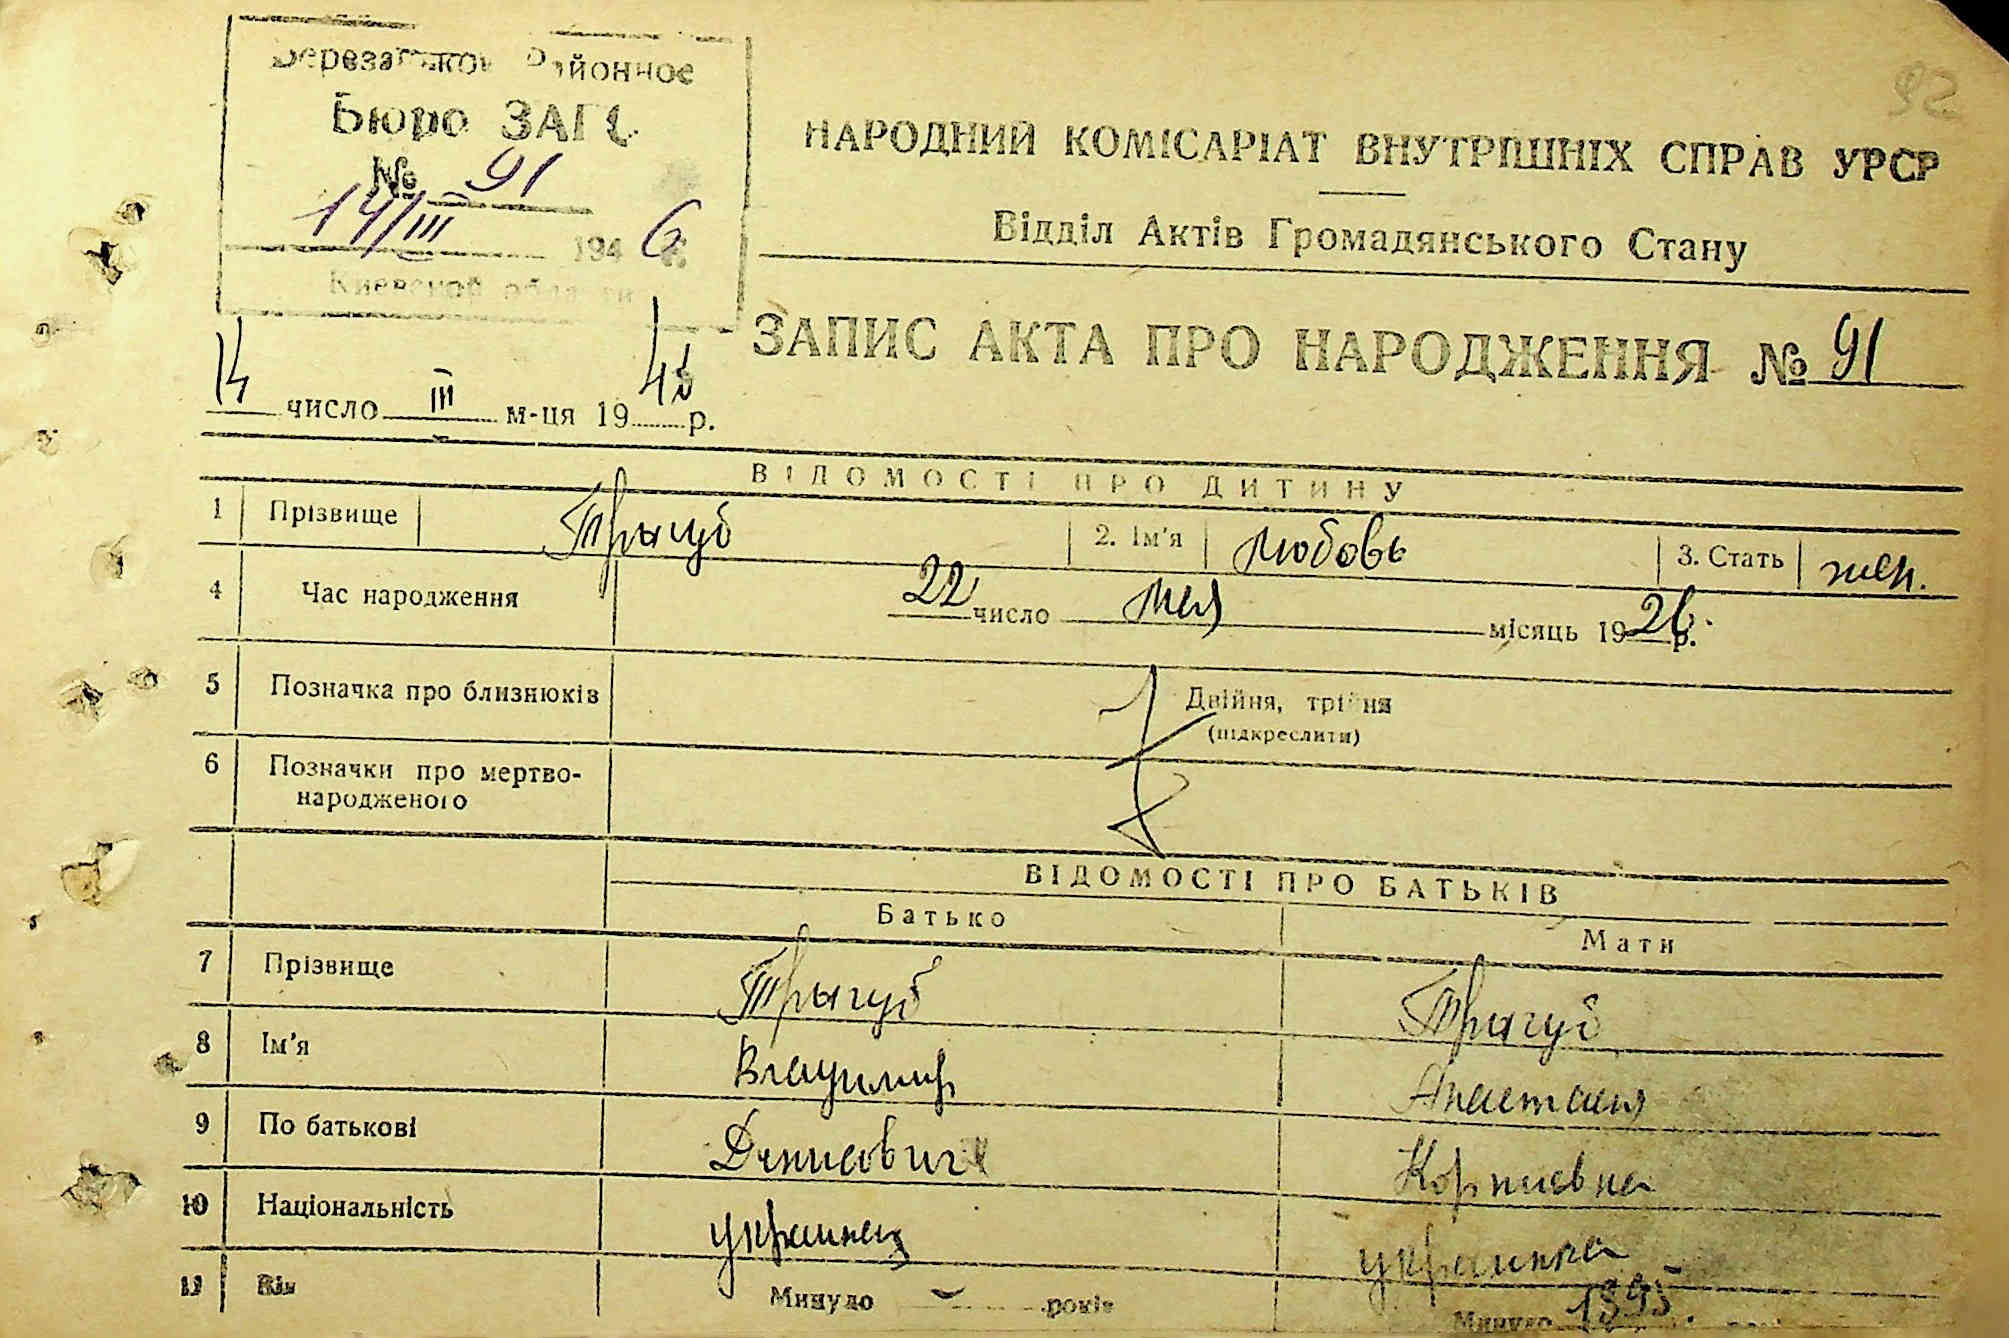 Районное
Бюро ЗАГС
№ 91
14/III 1946 г.
Киевской области
92
НАРОДНИЙ КОМІСАРІАТ ВНУТРІШНІХ СПРАВ УРСР
Відділ Актів Громадянського Стану
ЗАПИС АКТА ПРО НАРОДЖЕННЯ № 91
14 число III м-ця 1946 р.
ВІДОМОСТІ ПРО ДИТИНУ
1 Прізвище Трыгуб 2. Ім'я Любовь 3. Стать жен.
4 Час народження 22 число мая місяць 1926 р.
5 Позначка про близнюків Двійня, трійня
(підкреслити)
6 Позначки про мертво-
народженого
ВІДОМОСТІ ПРО БАТЬКІВ
Батько Мати
7 Прізвище Трыгуб Трыгуб
8 Ім'я Владимир Анастасия
9 По батькові Денисович Корниевна
10 Національність украинец украинка
11 Вік Минуло - років Минуло 1895